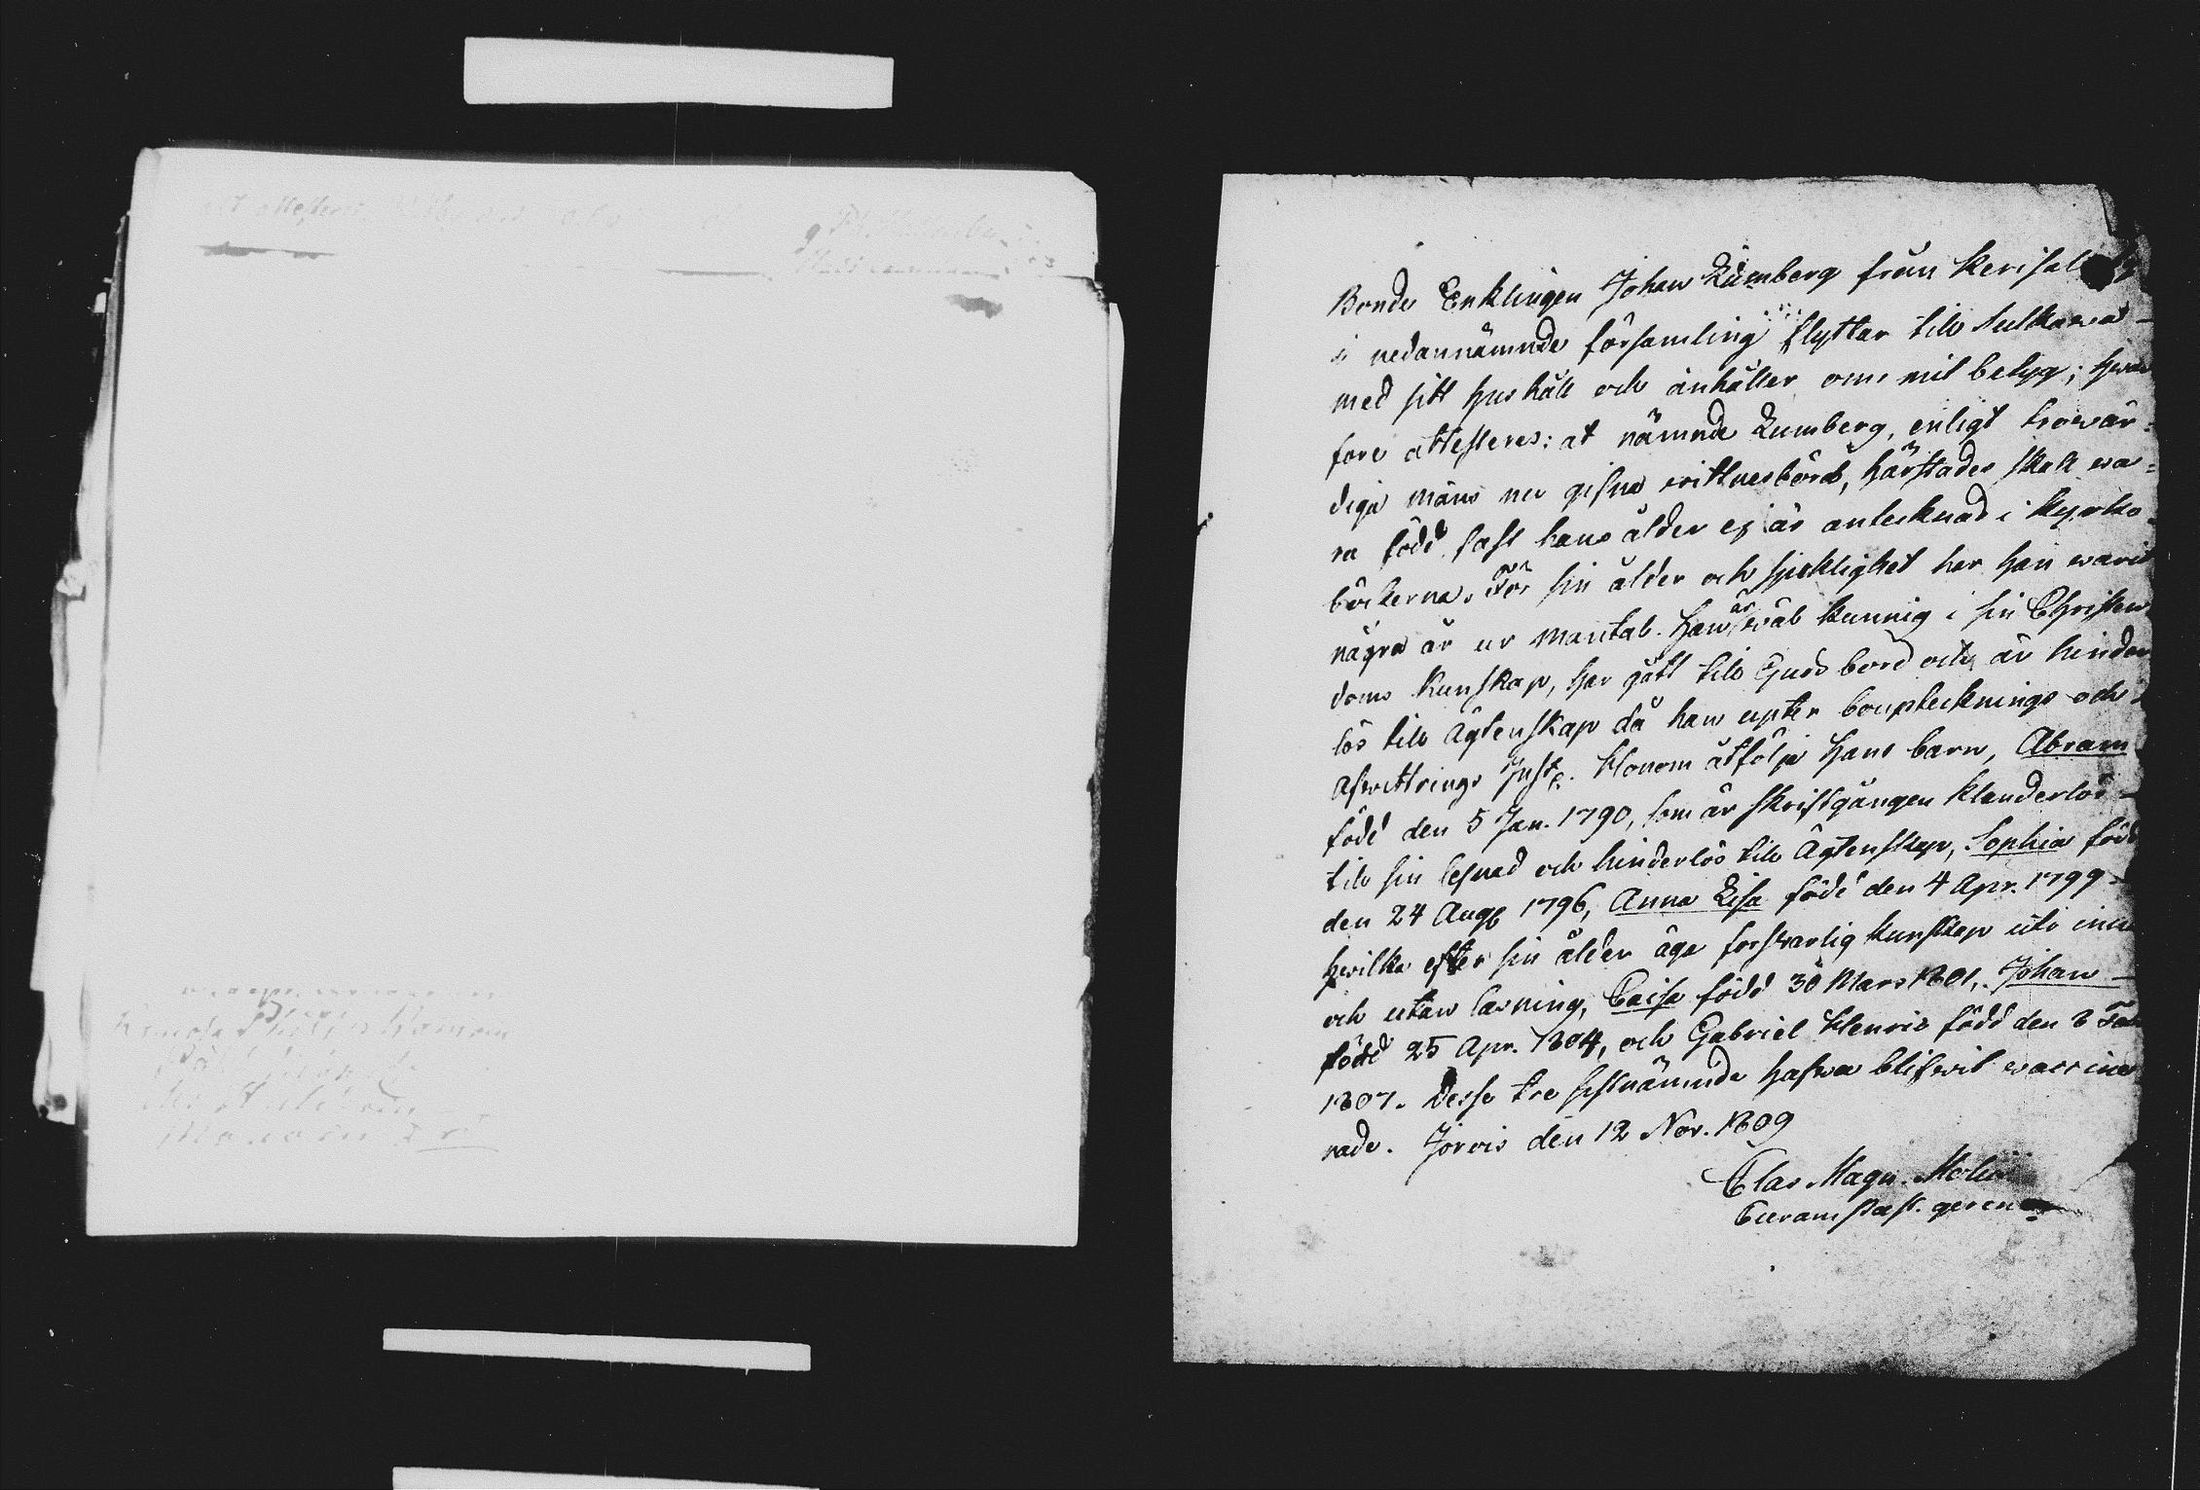 Bonde Enklingen Johan Lumberg från Kerisal by
i nedannämnde församling flyttar till Sulkawa
med sitt hushåll och anhåller om mit betyg; hwar
före attesteres: at nämnde Lumberg, enligt trowär=
diga mäns nu gifna wittnesbörd, härstädes skall wa=
ra född fast hans ålder ej är antecknad i kyrko
böckerna. För sin ålder och sjuklighet har han warit
några år ur mantal. Han är wäl kunnig i sin Christen
doms kunskap, har gått till Guds bord och är hinder
lös till Ägtenskap då han upter bouptecknings och
afwittrings Inst. Honom åtfölja hans barn, Abram
född den 5 Jan. 1790, som är skriftgången klanderlös
till sin lefnad och hinderlös till Ägtenskap, Sophia född
den 24 Aug 1796, Anna Lisa född den 4 Apr. 1799
hwilka efter sin ålder äga forswarlig kunskap uti inn
och utan läsning, Caisa född 30 Mars 1801, Johan
född 25 Apr. 1804, och Gabriel Henric född den 8
1807. Desse tre sistnämnde hafwa blifwit waccine
rade. Jorois den 12 Nov. 1809
Clas Magn. Molin
Curam past. gerens